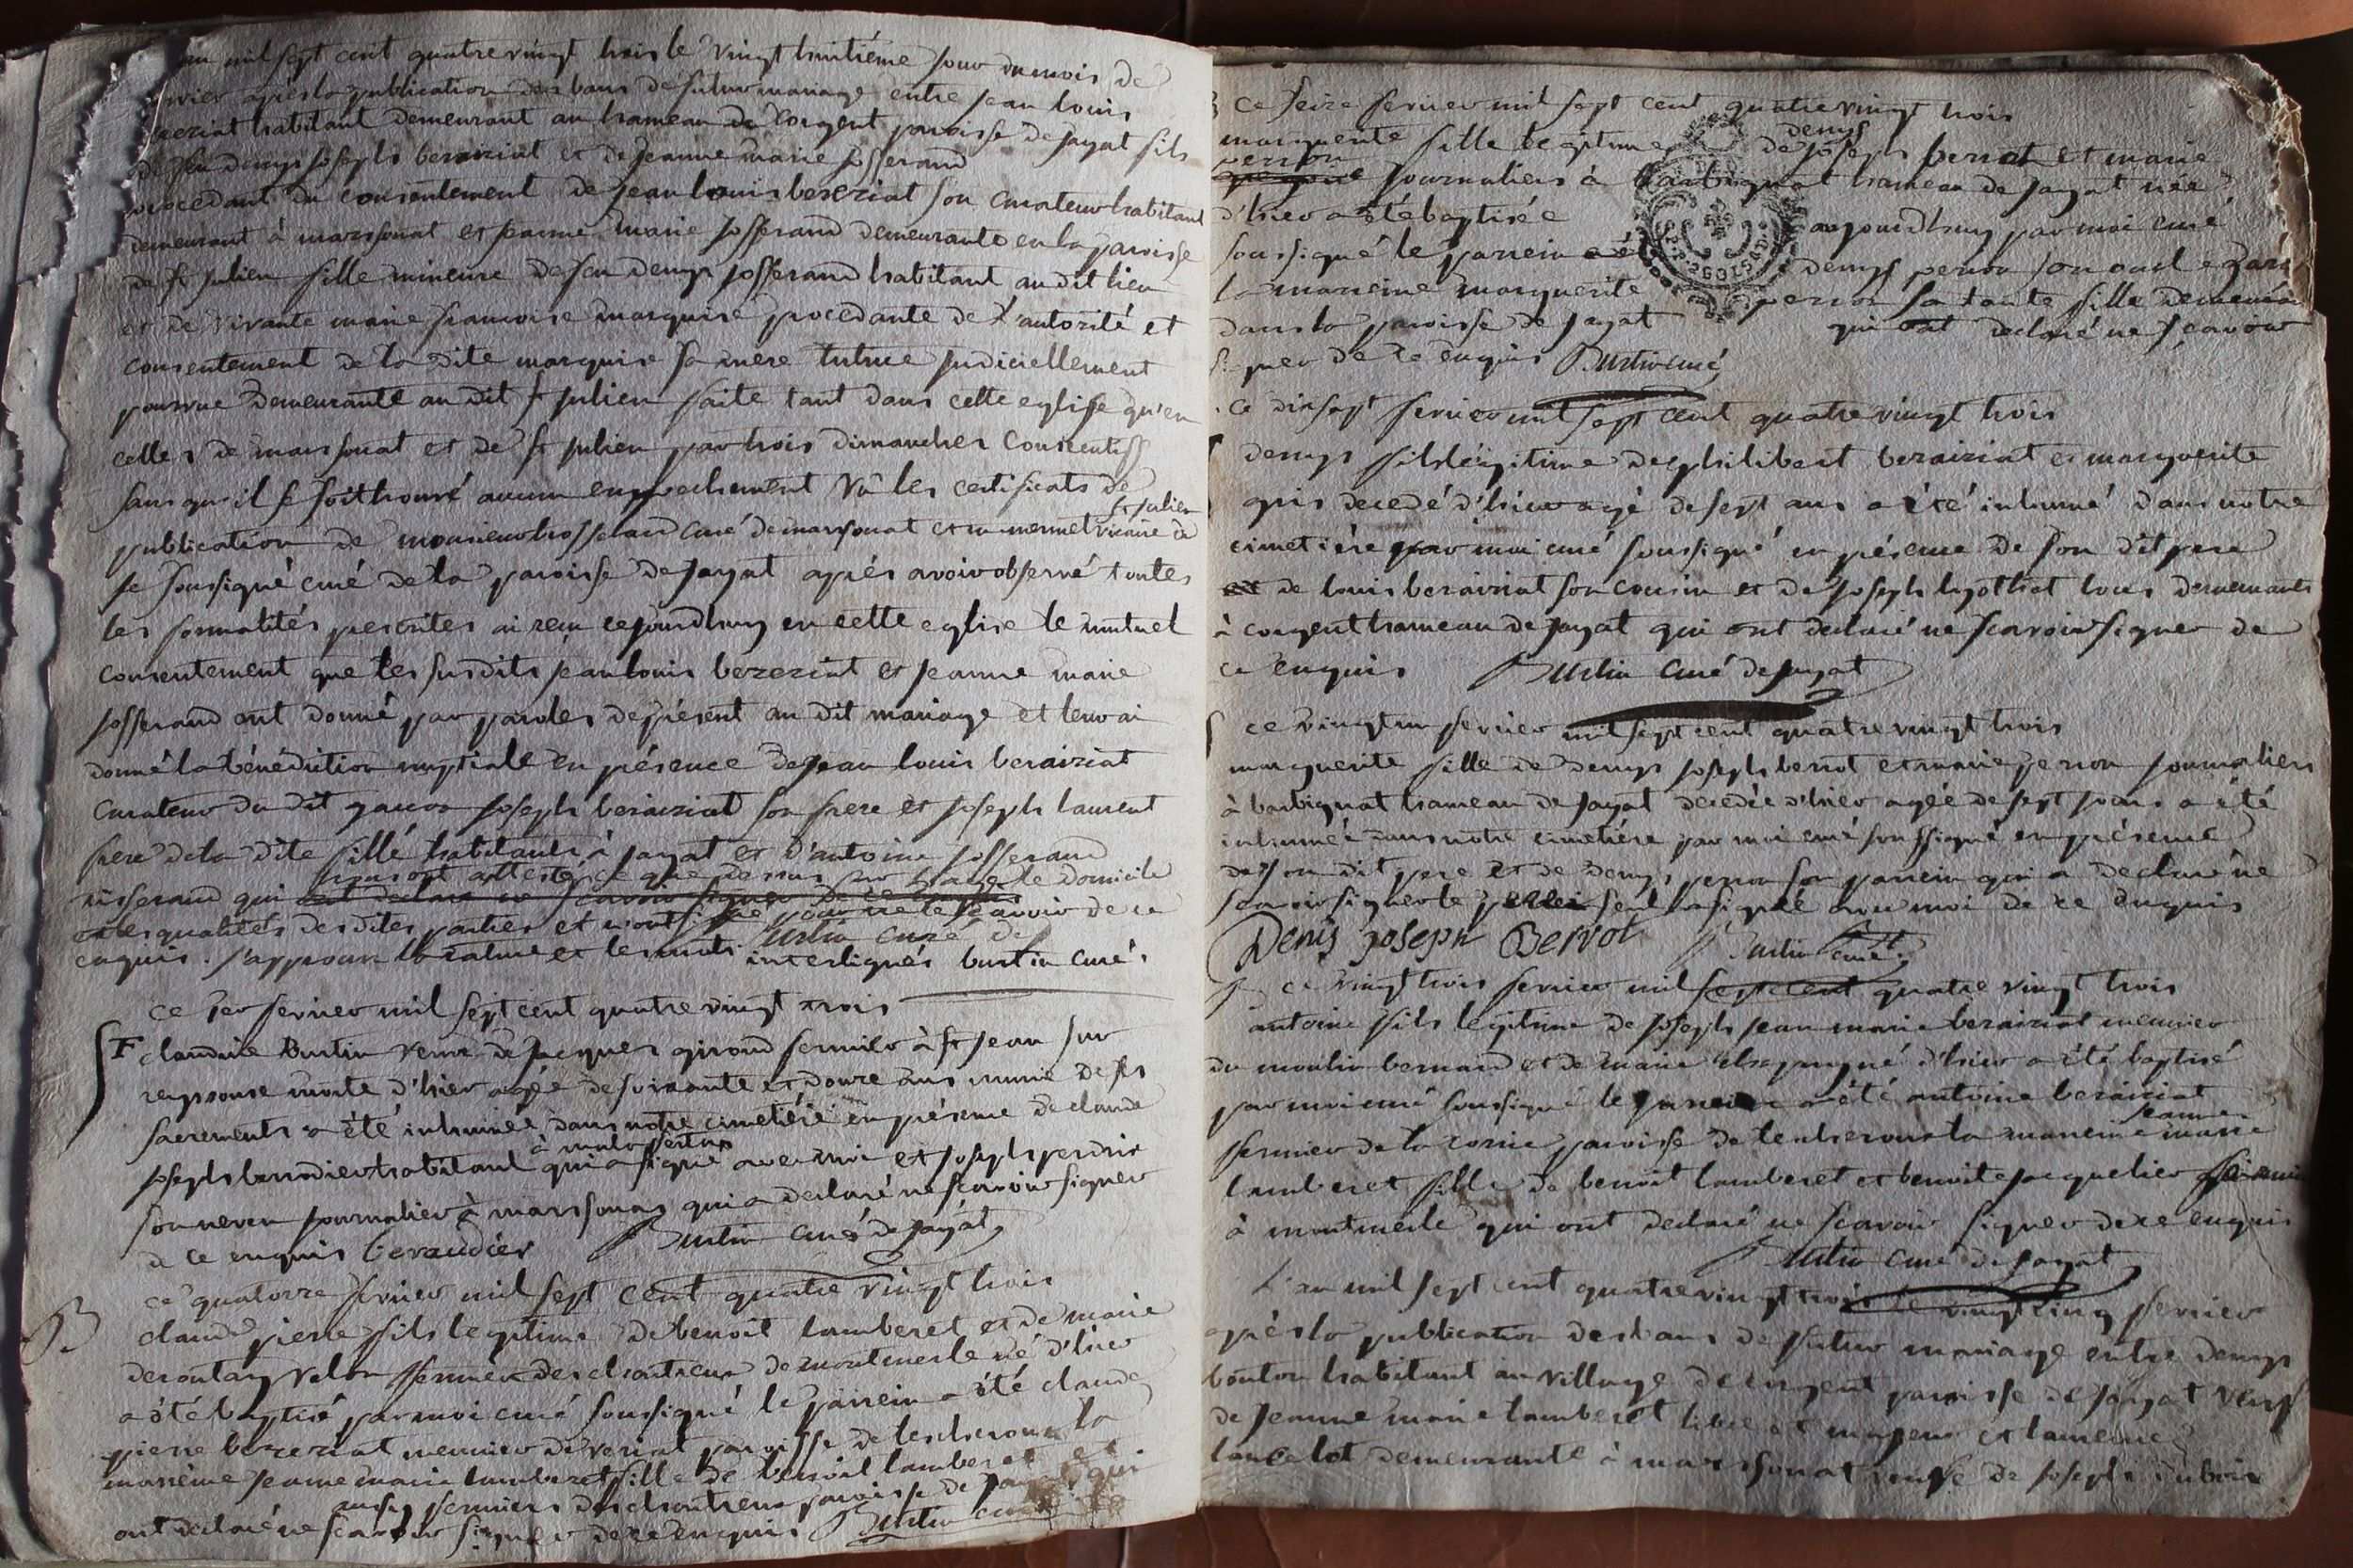 an mil sept cent quatre vingt trois le vingt huitiéme jour du mois de
vrier aprés la publication des bans de futur mariage entre jean louis
bezeziat habitant demeurant au hameau de Congent paroisse de jayat fils
de feu denys joseph bereziat et de jeanne marie josserand
procedant du consentement de jean louis bereziat son curateur habitant
demeurant à marsonat et jeanne marie josserand demeurante en la paroisse
de st julien fille mineure de feu denys josserand habitant au dit lieu
et de vivante marie francoise marquise procedante de l'autorité et
consentement de la dite marquise sa mere tutrice judiciellement
pourvue demeurante au dit st julien faite tant dans cette eglise qu'en
celles de marsonat et de st julien par trois dimanches consecutifs
sans qu'il se soit trouvé aucun empechement vû les certificats de
publication de monsieur brosselard curé de marsonat et m mermet vicaire de st julien
je soussigné curé de la paroisse de jayat aprés avoir observé toutes
les formalités prescrites ai reçu cejourdhuy en cette eglise le mutuel
consentement que les susdits jean louis bezeziat et jeanne marie
josserand ont donné par paroles de présent au dit mariage et leur ai
donné la bénédiction nuptiale en présence de jean louis beraiziat
curateur du dit garcon joseph beraiziat son frere et joseph laurent
frere de la dite fille habitants à jayat et d'antoine josserand
nous ont attesté ce que dessus sur l'age le domicile
josserand qui ont declaré ne scavoir signer de ce enquis
et les qualités desdites parties et n'ont signé pour ne le scavoir de ce
enquis. j'approuve la rature et les mots interlignés burtin curé
burtin curé de
ce 1er fevrier mil sept cent quatre vingt trois
F claudine burtin veuve de jacques giroud fermier à st jean sur
reyssouse morte d'hier agée de soixante et douze ans munie de ses
sacrements a été inhumée dans notre cimetiére en présence de claude
à malafertas
joseph beraudier habitant qui a signé avec moi et joseph perdrix
son neveu journalier à marsonay qui a declaré ne scavoir signer
de ce enquis beraudier Burtin curé de jayat
ce quatorze fevrier mil sept cent quatre vingt trois
B claude pierre fils legitime de benoit lamberet et de marie
derontay valon fermier des chartreux de montmerle né d'hier
a été baptisé par moi curé soussigné le parrein a été claude
pierre bezeziat meunier de veriat paroisse de lescheroux la
marréine jeanne marie lamberet fille de benoit lamberet et
aussy fermiers des chartreux paroisse de jayat qui
ont declaré ne scavoir signer de ce enquis Burtin curé
B ce seize fevrier mil sept cent quatre vingt trois
marguerite fille legitime de denys joseph berrot et marie
perron journaliers à barbignat hameau de jayat née
d'hier a été baptisée aujourdhuy par moi curé
soussigné le parrein a été denys perron son oncle
la marreine marguerite perron sa tante fille demeurant
dans la paroisse de jayat qui ont declaré ne scavoir
signer de ce enquis Burtin curé
ce dix sept fevrier mil sept cent quatre vingt trois
denys fils légitime de philibert beraiziat et marguerite
gris decedé d'hier agé de sept ans a été inhumé dans notre
cimetiére par moi curé soussigné en présence de son dit pere
de louis beraiziat son cousin et de joseph tous demeurants
à congent hameau de jayat qui ont declaré ne scavoir signer de
ce enquis Burtin curé de jayat
ce vingt un fevrier mil sept cent quatre vingt trois
marguerite fille de denys joseph berrot et marie perron journaliers
à barbignat hameau de jayat decedée d'hier agée de sept jours a été
inhumée dans notre cimetiére par moi curé soussigné en présence
de son dit pere et de denys perron son parrein qui a declaré ne
scavoir signer le pere seul a signé avec moi de ce enquis
Denis joseph Berrot Burtin curé
ce vingt trois fevrier mil sept cent quatre vingt trois
antoine fils légitime de joseph jean marie beraiziat meunier
du moulin bernard et de marie né d'hier a été baptisé
par moi curé soussigné le parrein a été antoine beraiziat
fermier de la paroisse de lescheroux la marreine jeanne marie
lamberet fille de benoit lamberet et benoite jacquelier fermiers
à montmerle qui ont declaré ne scavoir signer de ce enquis
Burtin curé de jayat
L'an mil sept cent quatre vingt trois le vingt cinq fevrier
aprés la publication des bans de futur mariage entre denys
bouton habitant au village de congent paroisse de jayat veuf
de jeanne marie lamberet libre et majeur et laurence
lancelot demeurante à marsonat veuve de joseph dubois